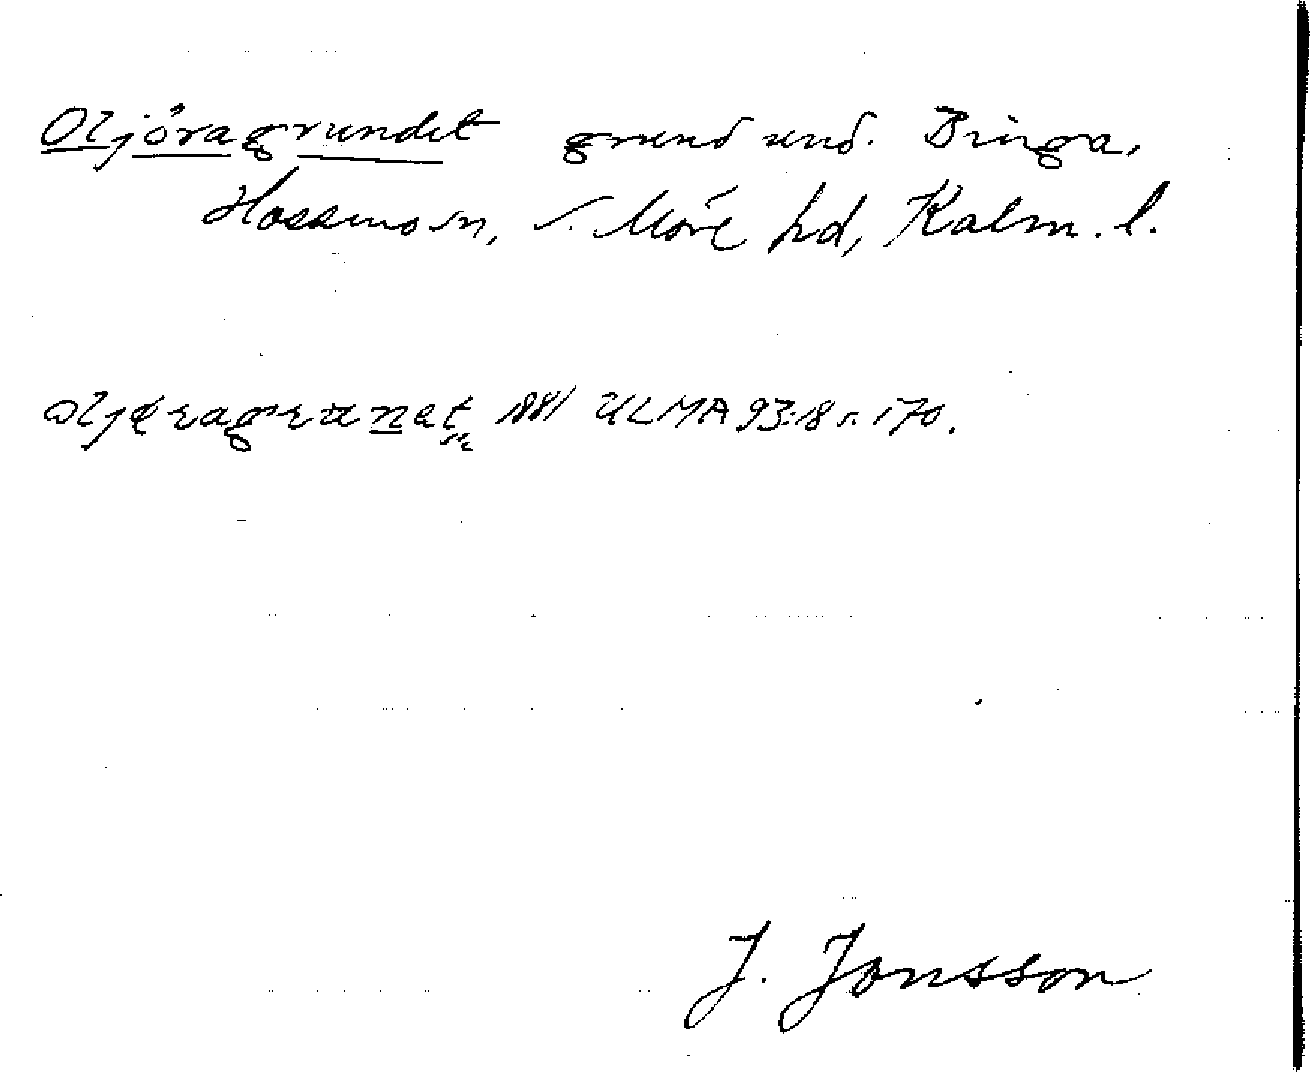 Oljöragrundet grund und. Binga,
Hossmo sn, S. Möre hd, Kalm. l.
1881 ULMA 93:18 s. 170.
J. Jonsson